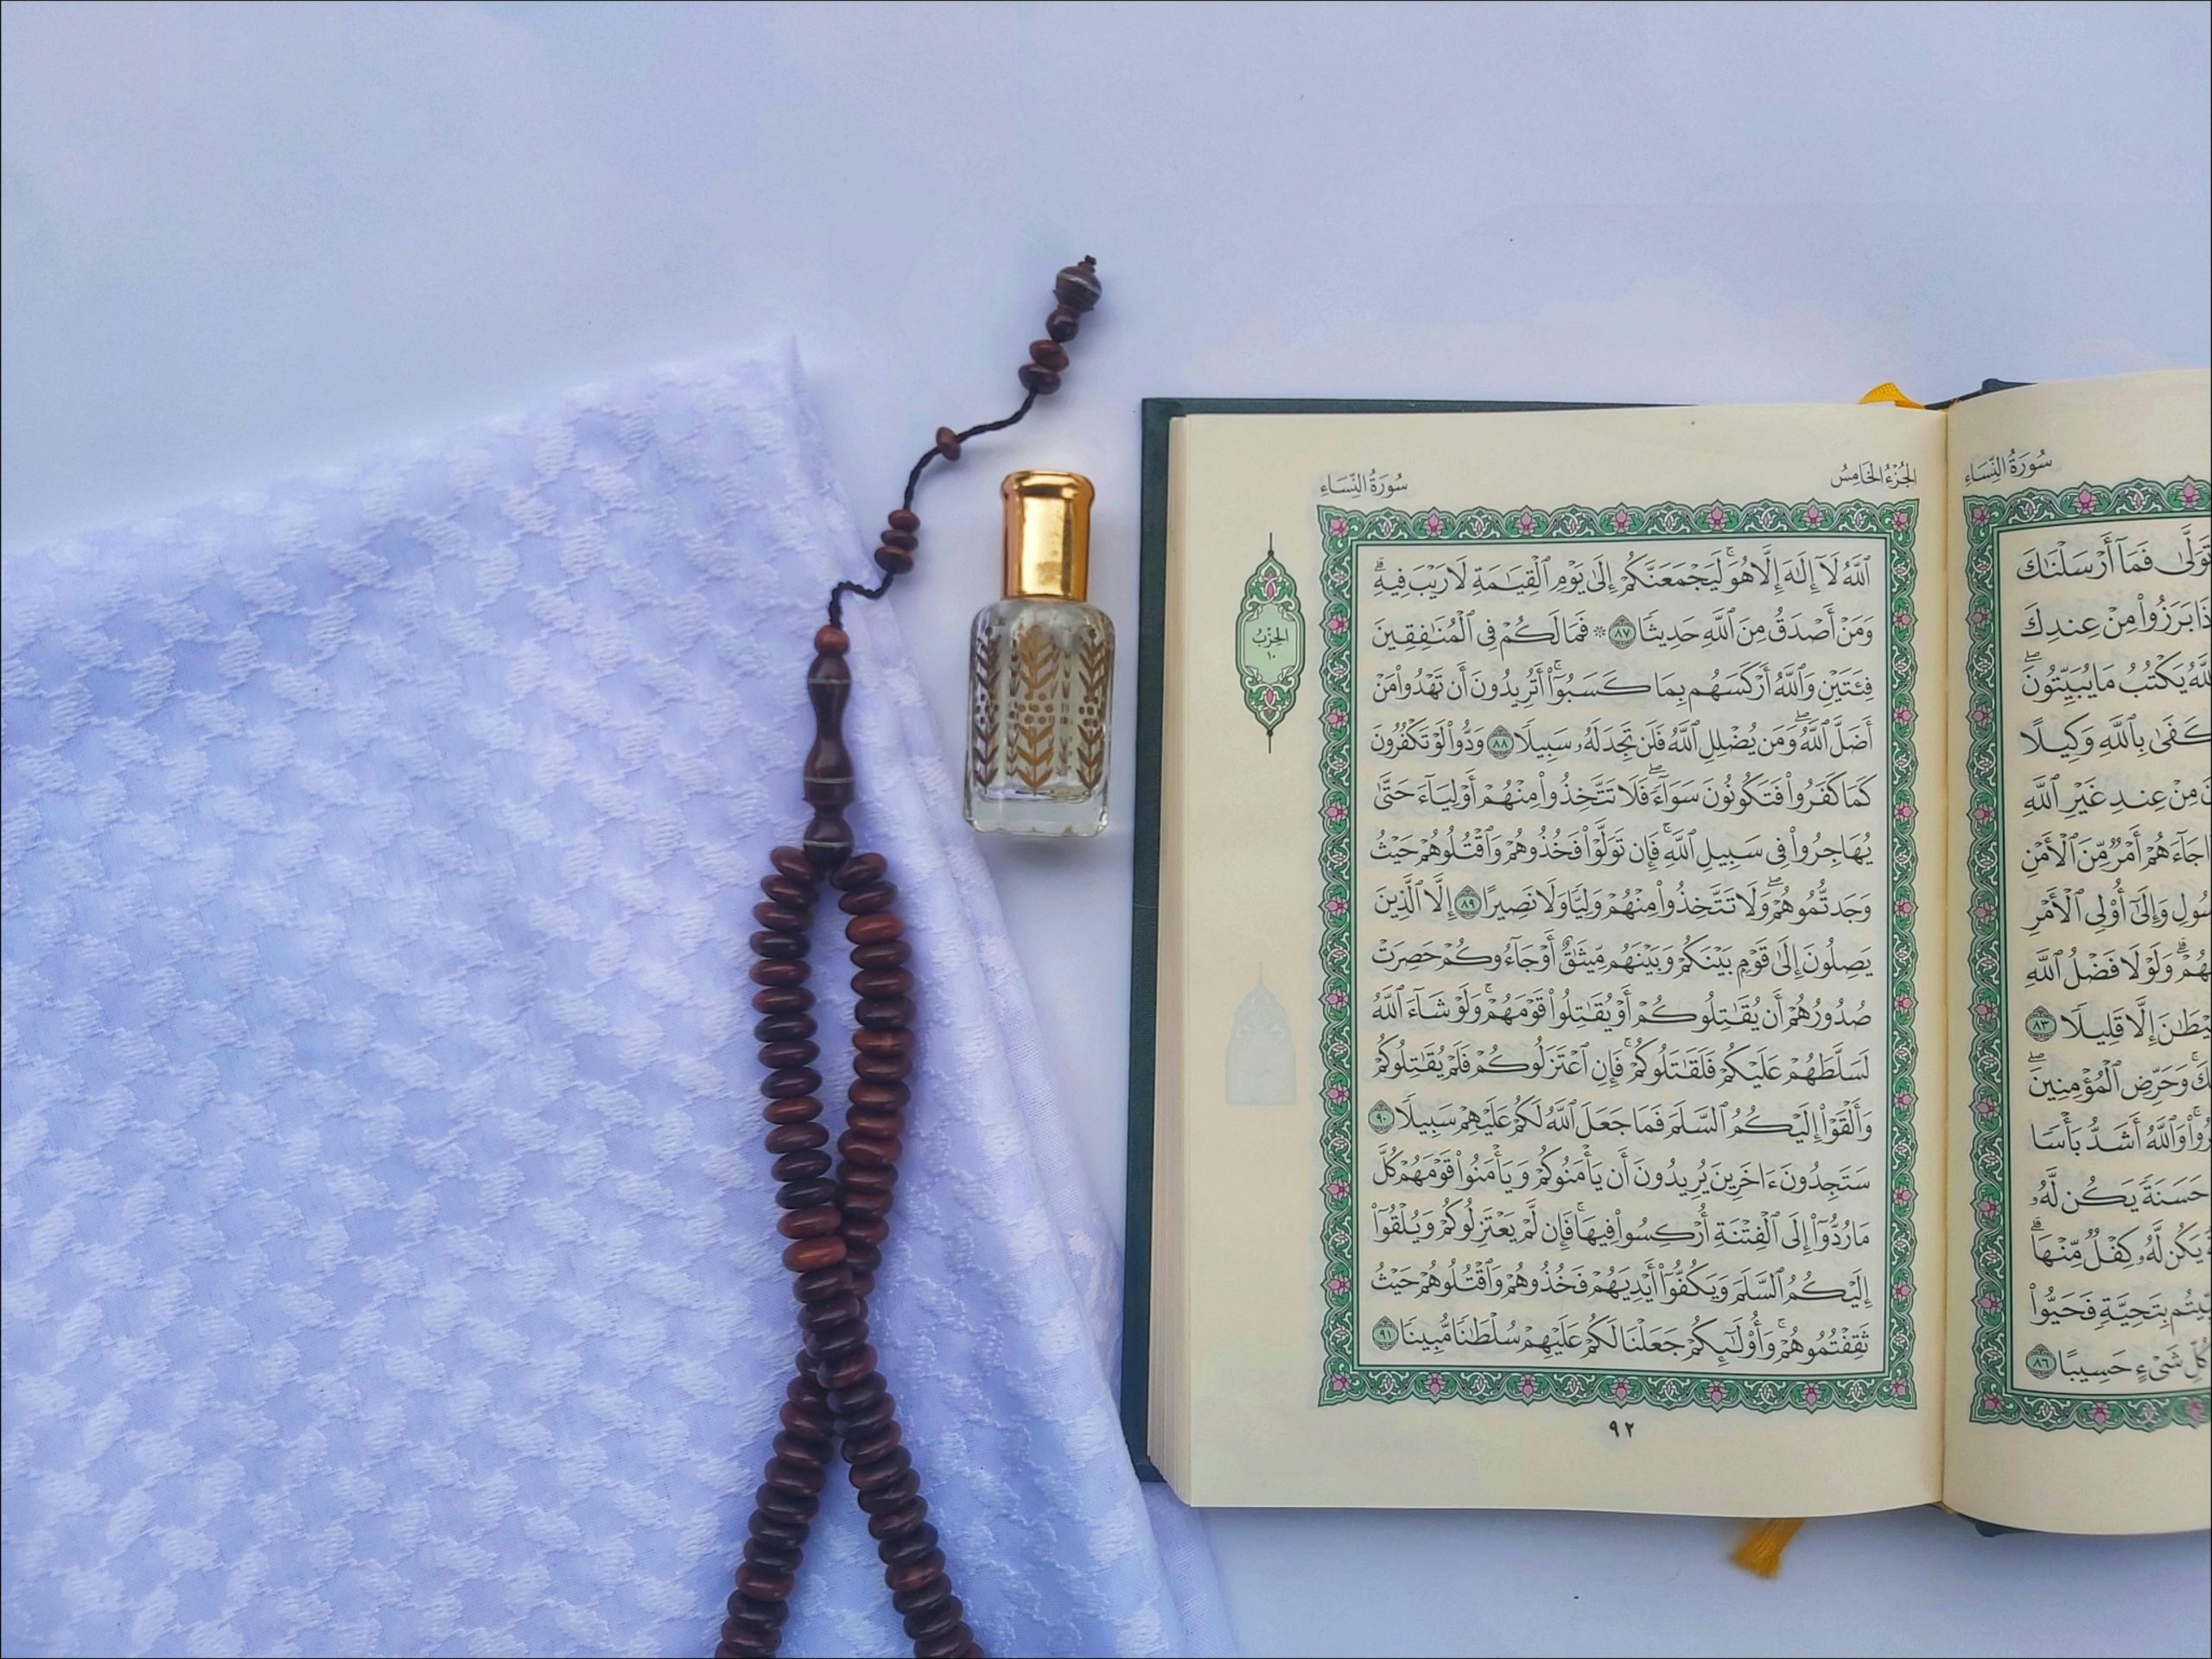 سُورَةُ النِّسَاءِ
تَوَلَّىٰ فَمَآ أَرْسَلْنَٰكَ
بَرَزُواْ مِنْ عِندِكَ
يَكْتُبُ مَا يُبَيِّتُونَۖ
كَفَىٰ بِٱللَّهِ وَكِيلًا
مِنْ عِندِ غَيْرِ ٱللَّهِ
جَآءَهُمْ أَمْرٌ مِّنَ ٱلْأَمْنِ
وَإِلَىٰٓ أُوْلِي ٱلْأَمْرِ
وَلَوْلَا فَضْلُ ٱللَّهِ
إِلَّا قَلِيلًا ٨٣
وَحَرِّضِ ٱلْمُؤْمِنِينَۖ
وَٱللَّهُ أَشَدُّ بَأْسًا
حَسَنَةً يَكُن لَّهُۥ
يَكُن لَّهُۥ كِفْلٌ مِّنْهَاۗ
بِتَحِيَّةٍ فَحَيُّواْ
شَيْءٍ حَسِيبًا ٨٦
الجُزْءُ الخَامِسُ
سُورَةُ النِّسَاءِ
ٱللَّهُ لَآ إِلَٰهَ إِلَّا هُوَۚ لَيَجْمَعَنَّكُمْ إِلَىٰ يَوْمِ ٱلْقِيَٰمَةِ لَا رَيْبَ فِيهِۗ
وَمَنْ أَصْدَقُ مِنَ ٱللَّهِ حَدِيثًا ٨٧ ۞ فَمَا لَكُمْ فِي ٱلْمُنَٰفِقِينَ
فِئَتَيْنِ وَٱللَّهُ أَرْكَسَهُم بِمَا كَسَبُوٓاْۚ أَتُرِيدُونَ أَن تَهْدُواْ مَنْ
أَضَلَّ ٱللَّهُۖ وَمَن يُضْلِلِ ٱللَّهُ فَلَن تَجِدَ لَهُۥ سَبِيلًا ٨٨ وَدُّواْ لَوْ تَكْفُرُونَ
كَمَا كَفَرُواْ فَتَكُونُونَ سَوَآءًۖ فَلَا تَتَّخِذُواْ مِنْهُمْ أَوْلِيَآءَ حَتَّىٰ
يُهَاجِرُواْ فِي سَبِيلِ ٱللَّهِۚ فَإِن تَوَلَّوْاْ فَخُذُوهُمْ وَٱقْتُلُوهُمْ حَيْثُ
وَجَدتُّمُوهُمْۖ وَلَا تَتَّخِذُواْ مِنْهُمْ وَلِيًّا وَلَا نَصِيرًا ٨٩ إِلَّا ٱلَّذِينَ
يَصِلُونَ إِلَىٰ قَوْمٍۭ بَيْنَكُمْ وَبَيْنَهُم مِّيثَٰقٌ أَوْ جَآءُوكُمْ حَصِرَتْ
صُدُورُهُمْ أَن يُقَٰتِلُوكُمْ أَوْ يُقَٰتِلُواْ قَوْمَهُمْۚ وَلَوْ شَآءَ ٱللَّهُ
لَسَلَّطَهُمْ عَلَيْكُمْ فَلَقَٰتَلُوكُمْۚ فَإِنِ ٱعْتَزَلُوكُمْ فَلَمْ يُقَٰتِلُوكُمْ
وَأَلْقَوْاْ إِلَيْكُمُ ٱلسَّلَمَ فَمَا جَعَلَ ٱللَّهُ لَكُمْ عَلَيْهِمْ سَبِيلًا ٩٠
سَتَجِدُونَ ءَاخَرِينَ يُرِيدُونَ أَن يَأْمَنُوكُمْ وَيَأْمَنُواْ قَوْمَهُمْ كُلَّ
مَا رُدُّوٓاْ إِلَى ٱلْفِتْنَةِ أُرْكِسُواْ فِيهَاۚ فَإِن لَّمْ يَعْتَزِلُوكُمْ وَيُلْقُوٓاْ
إِلَيْكُمُ ٱلسَّلَمَ وَيَكُفُّوٓاْ أَيْدِيَهُمْ فَخُذُوهُمْ وَٱقْتُلُوهُمْ حَيْثُ
ثَقِفْتُمُوهُمْۚ وَأُوْلَٰٓئِكُمْ جَعَلْنَا لَكُمْ عَلَيْهِمْ سُلْطَٰنًا مُّبِينًا ٩١
الحِزْبُ
١٠
٩٢